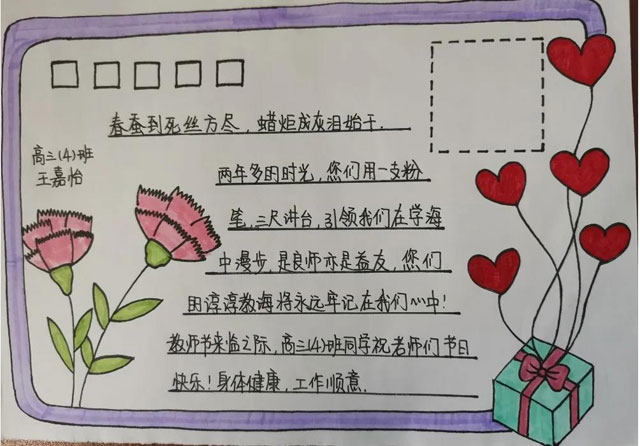 春蚕到死丝方尽，蜡炬成灰泪始干．
高三(4)班
王嘉怡
两年多的时光，您们用一支粉
笔，三尺讲台，引领我们在学海
中漫步，是良师亦是益友，您们
因谆谆教诲将永远牢记在我们心中！
教师节来临之际，高三(4)班同学祝老师们节日
快乐！身体健康，工作顺意．